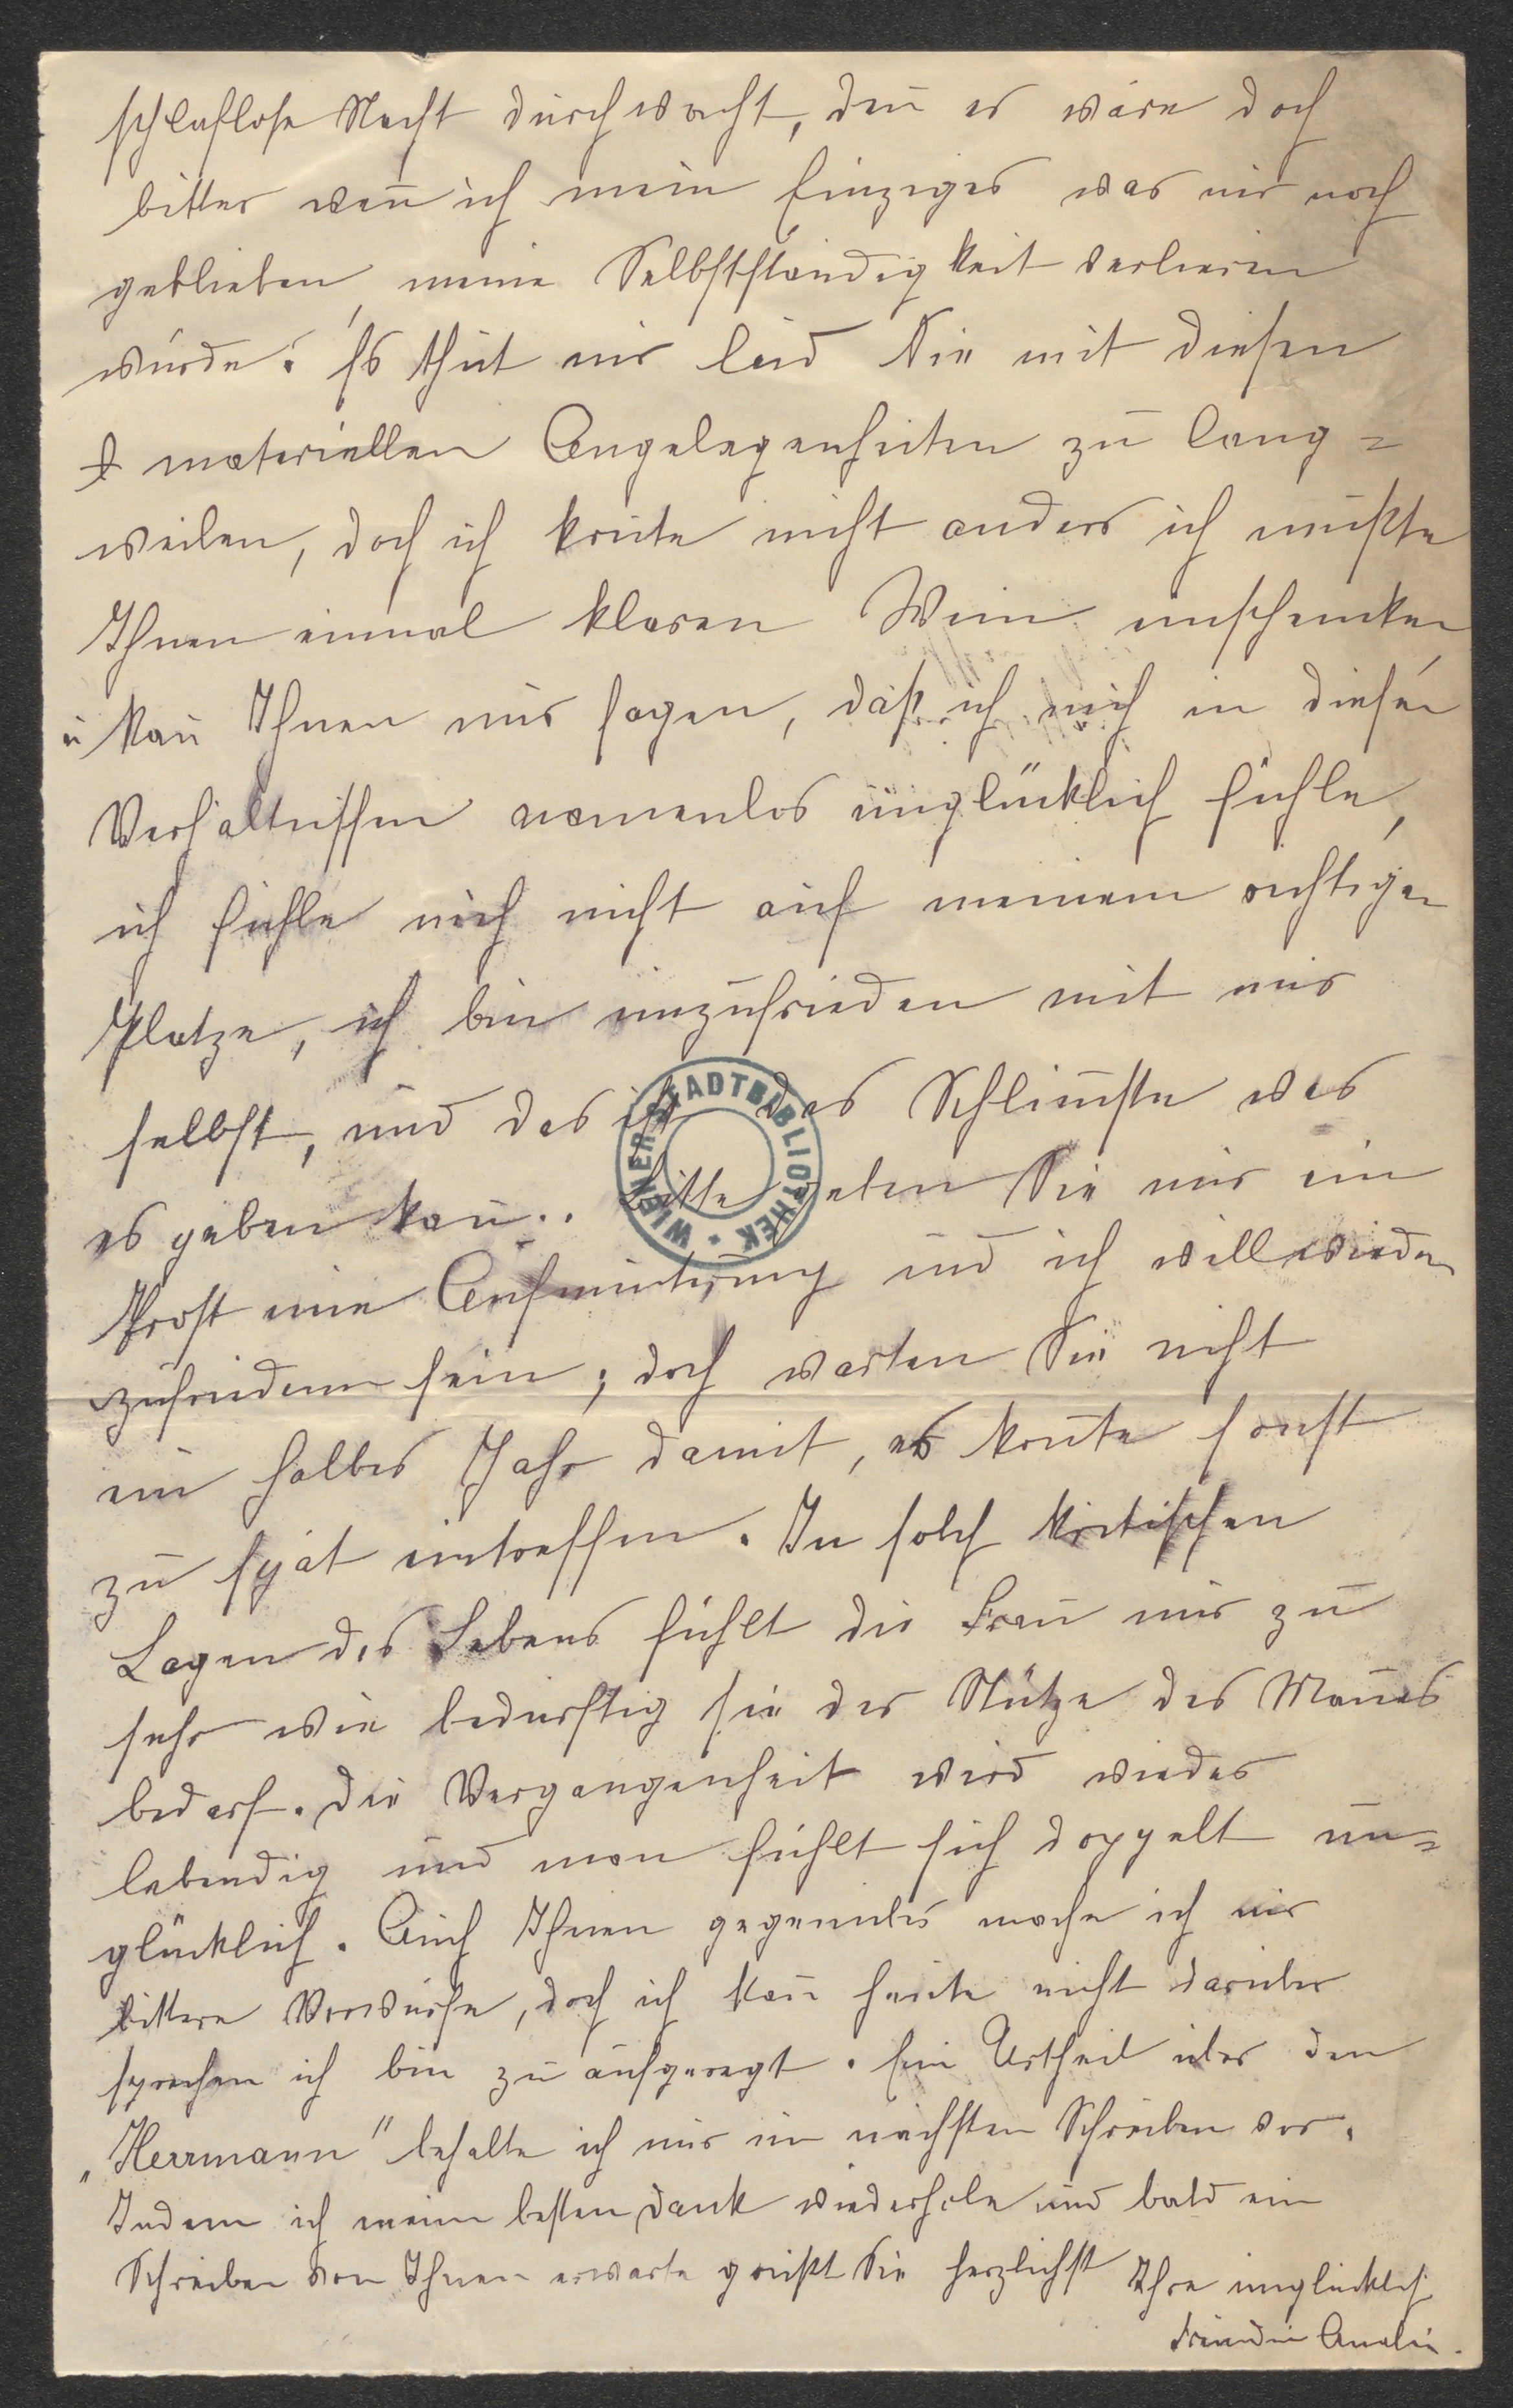 schlaflose Nacht durchwacht, den̄ es wäre doch
bitter wen̄ ich mein Einziges was mir noch
geblieben, meine Selbstständigkeit verlieren
würde. Es thut mir leid Sie mit diesen
materiellen Angelegenheiten zu lang=
weilen, doch ich kon̄te nicht anders ich mußte
Ihnen einmal klaren Wein einschenken
u kan̄ Ihnen nur sagen, daß ich mich in diesen
Verhältnissen namenlos unglücklich fühle,
ich fühle mich nicht auf meinem richtigen
Platze, ich bin unzufrieden mit mir
selbst, und das ist das Schlim̄ste was
es geben kan̄.. Bitte geben Sie mir ein
Trost eine Aufmunterung und ich will wieder
zufrieden sein; doch warten Sie nicht
ein halbes Jahr damit, es kön̄te sonst
zu spät eintreffen. In solch kritischen
Lagen des Lebens fühlt die Frau nur zu
sehr wie bedürftig sie der Stütze des Man̄es
bedarf. Die Vergangenheit wird wieder
lebendig und man fühlt sich doppelt un=
glücklich. Auch Ihnen gegenüber mache ich mir
bittere Vorwürfe, doch ich kan̄ heute nicht darüber
sprechen ich bin zu aufgeregt. Ein Urtheil über den
„Herrmann" behalte ich mir im nächsten Schreiben vor.
Indem ich meinen besten Dank wiederhole und bald ein
Schreiben von Ihnen erwarte grüßt Sie herzlichst Ihre unglücklich
Freundin Amalie.
WIENER STADTBIBLIOTHEK